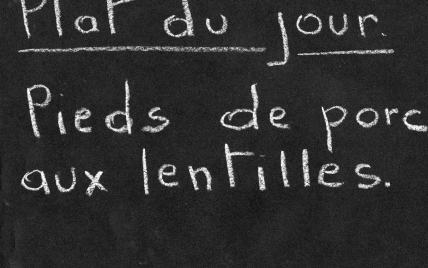 Plat du jour.
Pieds de porc
aux lentilles.